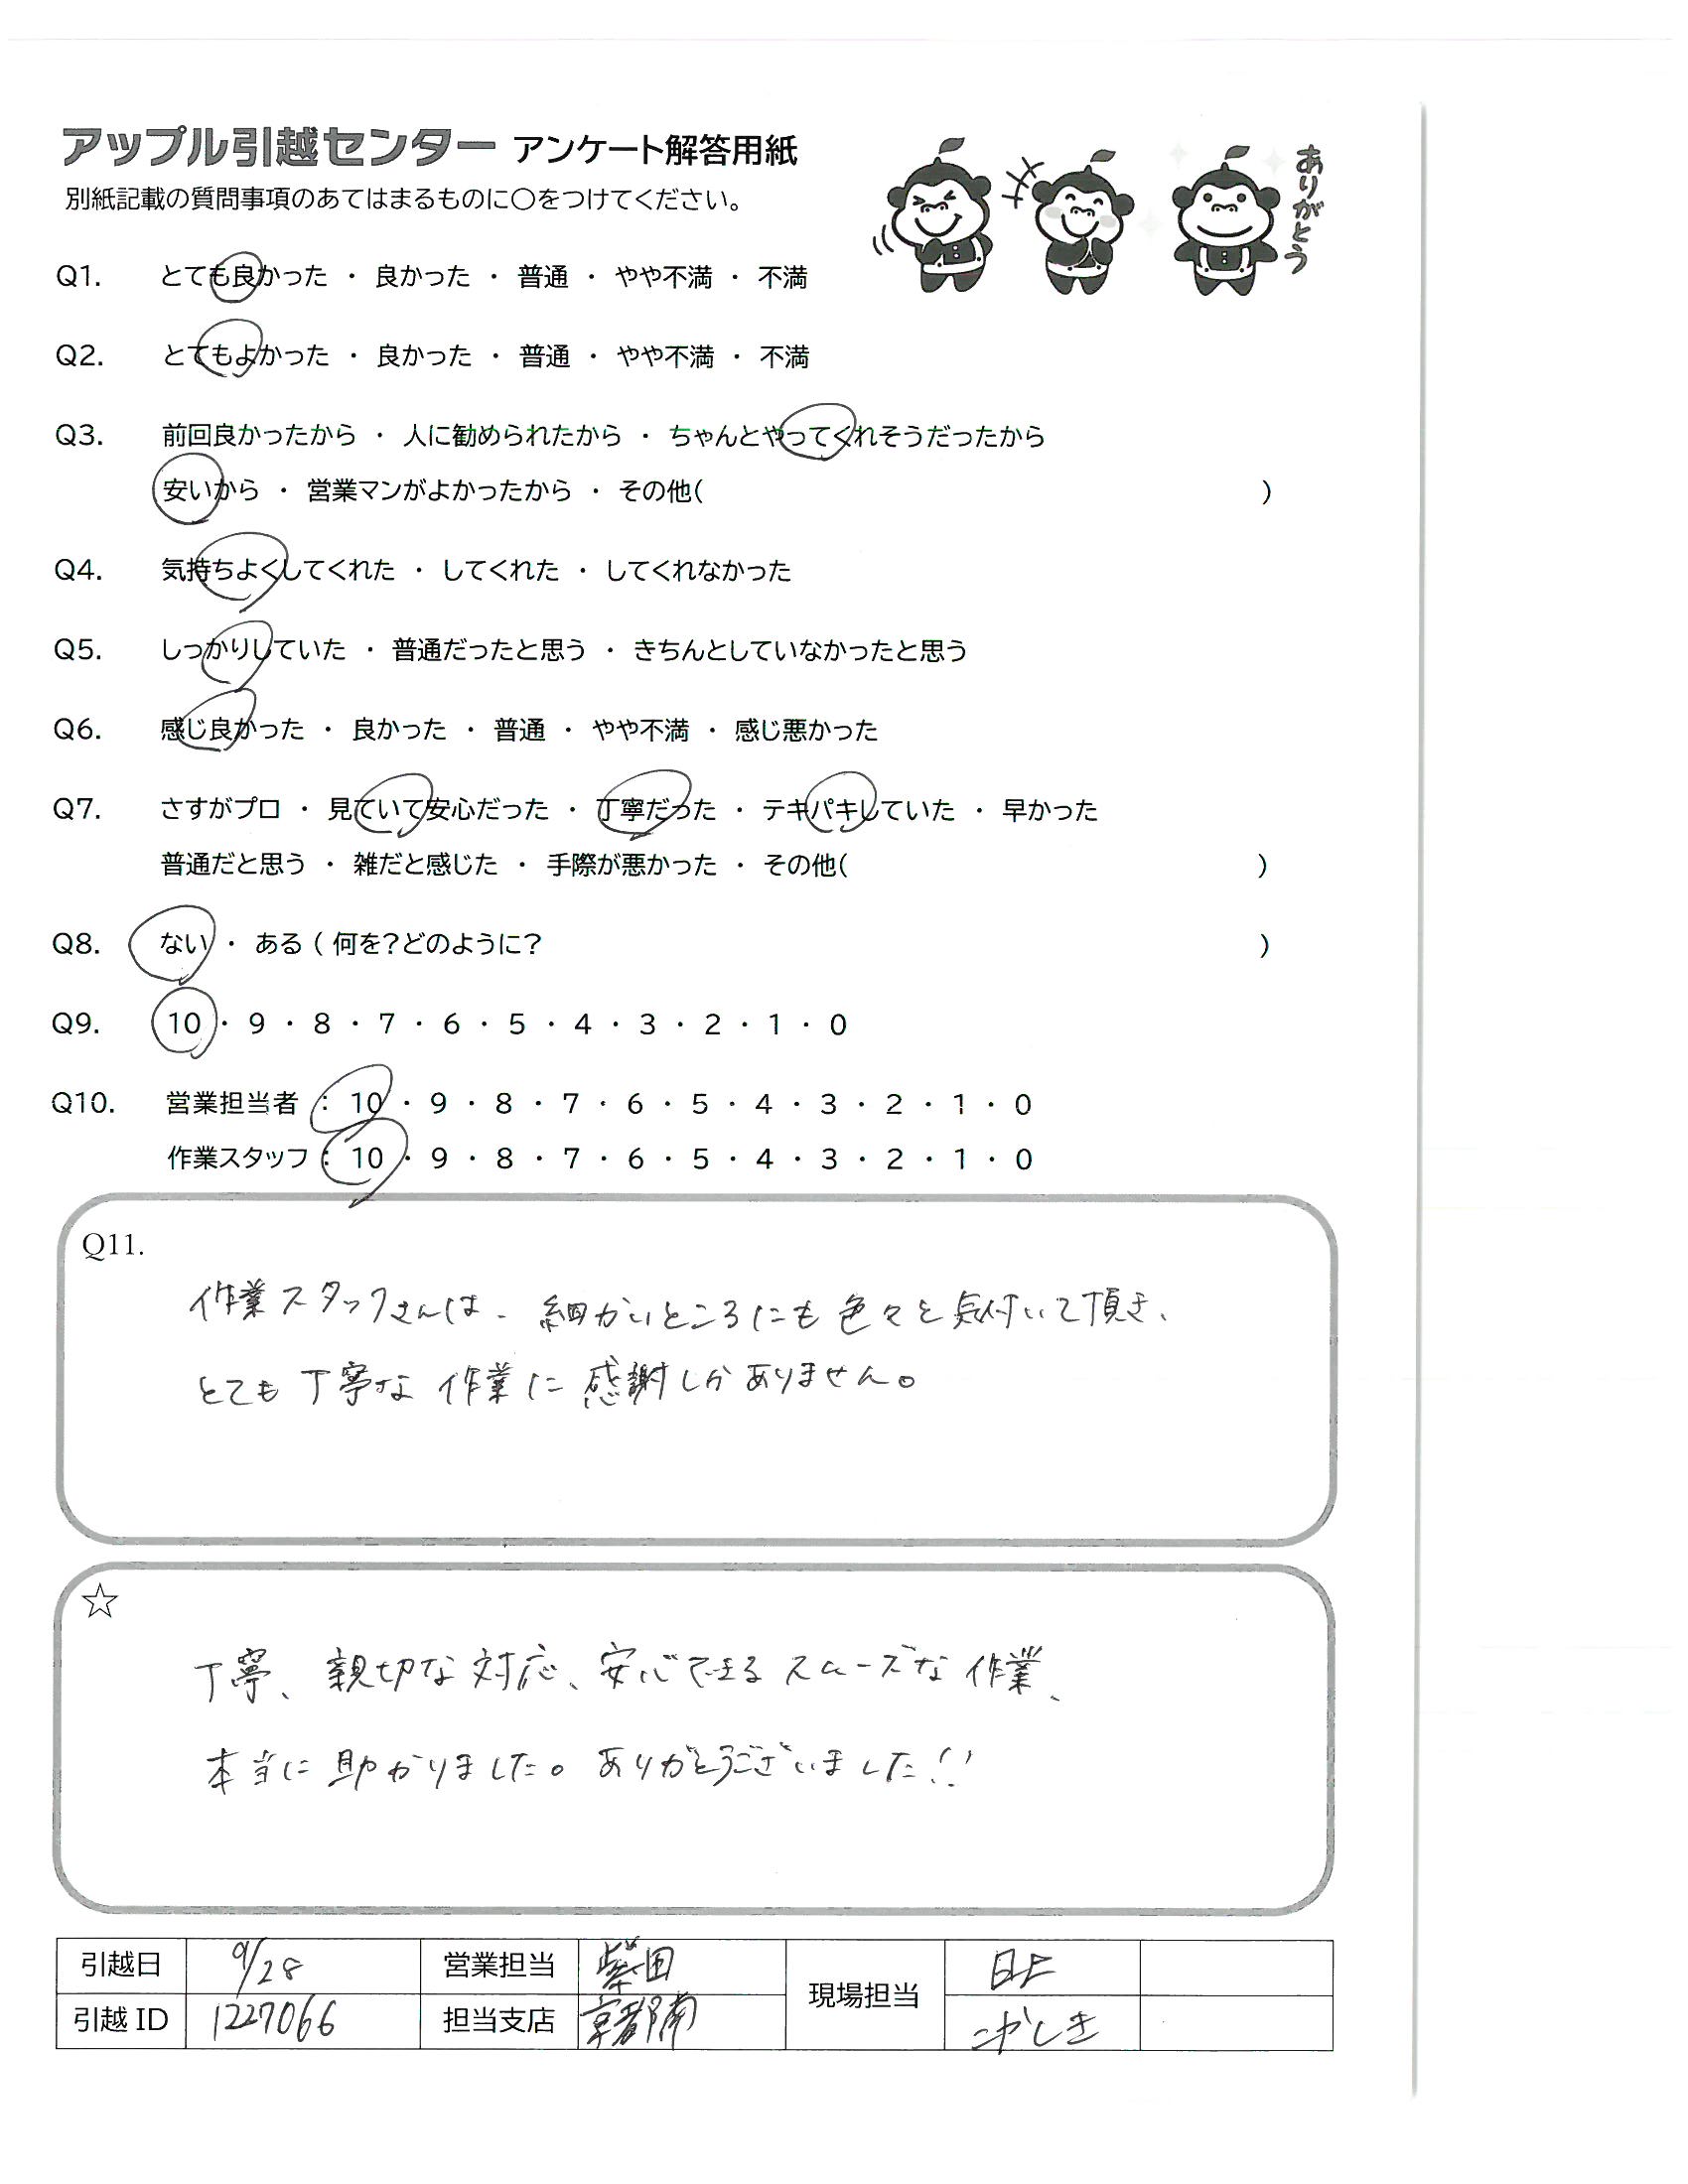 アップル引越センター アンケート解答用紙
ありがとう
別紙記載の質問事項のあてはまるものに○をつけてください。
Q1. とても良かった ・ 良かった ・ 普通 ・ やや不満 ・ 不満
Q2. とてもよかった ・ 良かった ・ 普通 ・ やや不満 ・ 不満
Q3. 前回良かったから ・ 人に勧められたから ・ ちゃんとやってくれそうだったから
安いから ・ 営業マンがよかったから ・ その他( )
Q4. 気持ちよくしてくれた ・ してくれた ・ してくれなかった
Q5. しっかりしていた ・ 普通だったと思う ・ きちんとしていなかったと思う
Q6. 感じ良かった ・ 良かった ・ 普通 ・ やや不満 ・ 感じ悪かった
Q7. さすがプロ ・ 見ていて安心だった ・ 丁寧だった ・ テキパキしていた ・ 早かった
普通だと思う ・ 雑だと感じた ・ 手際が悪かった ・ その他( )
Q8. ない ・ ある ( 何を?どのように? )
Q9. 10 ・ 9 ・ 8 ・ 7 ・ 6 ・ 5 ・ 4 ・ 3 ・ 2 ・ 1 ・ 0
Q10. 営業担当者 : 10 ・ 9 ・ 8 ・ 7 ・ 6 ・ 5 ・ 4 ・ 3 ・ 2 ・ 1 ・ 0
作業スタッフ : 10 ・ 9 ・ 8 ・ 7 ・ 6 ・ 5 ・ 4 ・ 3 ・ 2 ・ 1 ・ 0
Q11.
作業スタッフさんは、細かいところにも色々と気付いて頂き、
とても丁寧な作業に感謝しかありません。
☆
丁寧、親切な対応、安心できるスムーズな作業、
本当に助かりました。ありがとうございました!!
引越日 9/28 営業担当 柴田 現場担当
引越ID 1227066 担当支店 京都南 こやしき